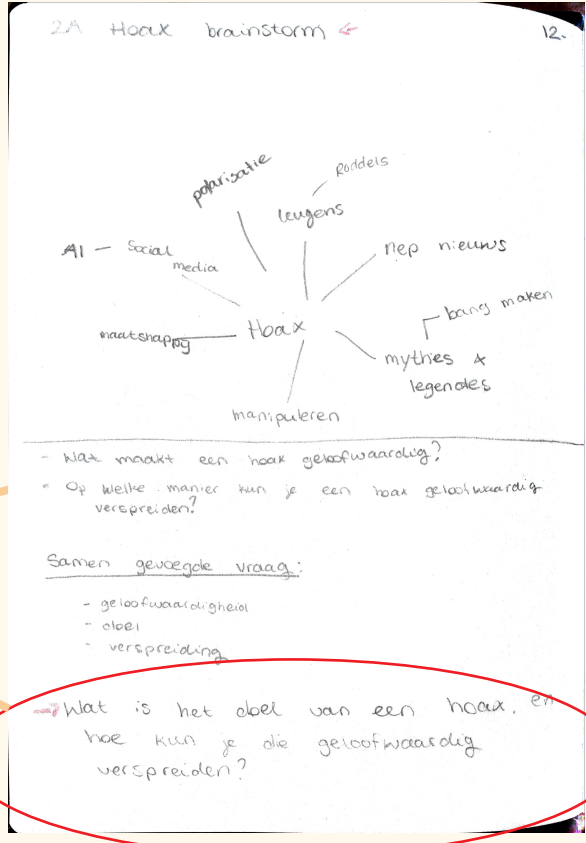 2A Hoax brainstorm
12.
polarisatie
Roddels
leugens
AI — Social
media
nep nieuws
bang maken
maatshappy
Hoax
mythes &
legendes
manipuleren
- Wat maakt een hoax geloofwaardig?
- Op welke manier kun je een hoax geloofwaardig
verspreiden?
Samen gevoegde vraag:
- geloofwaardigheid
- doel
- verspreiding
→ Wat is het doel van een hoax, en
hoe kun je die geloofwaardig
verspreiden?